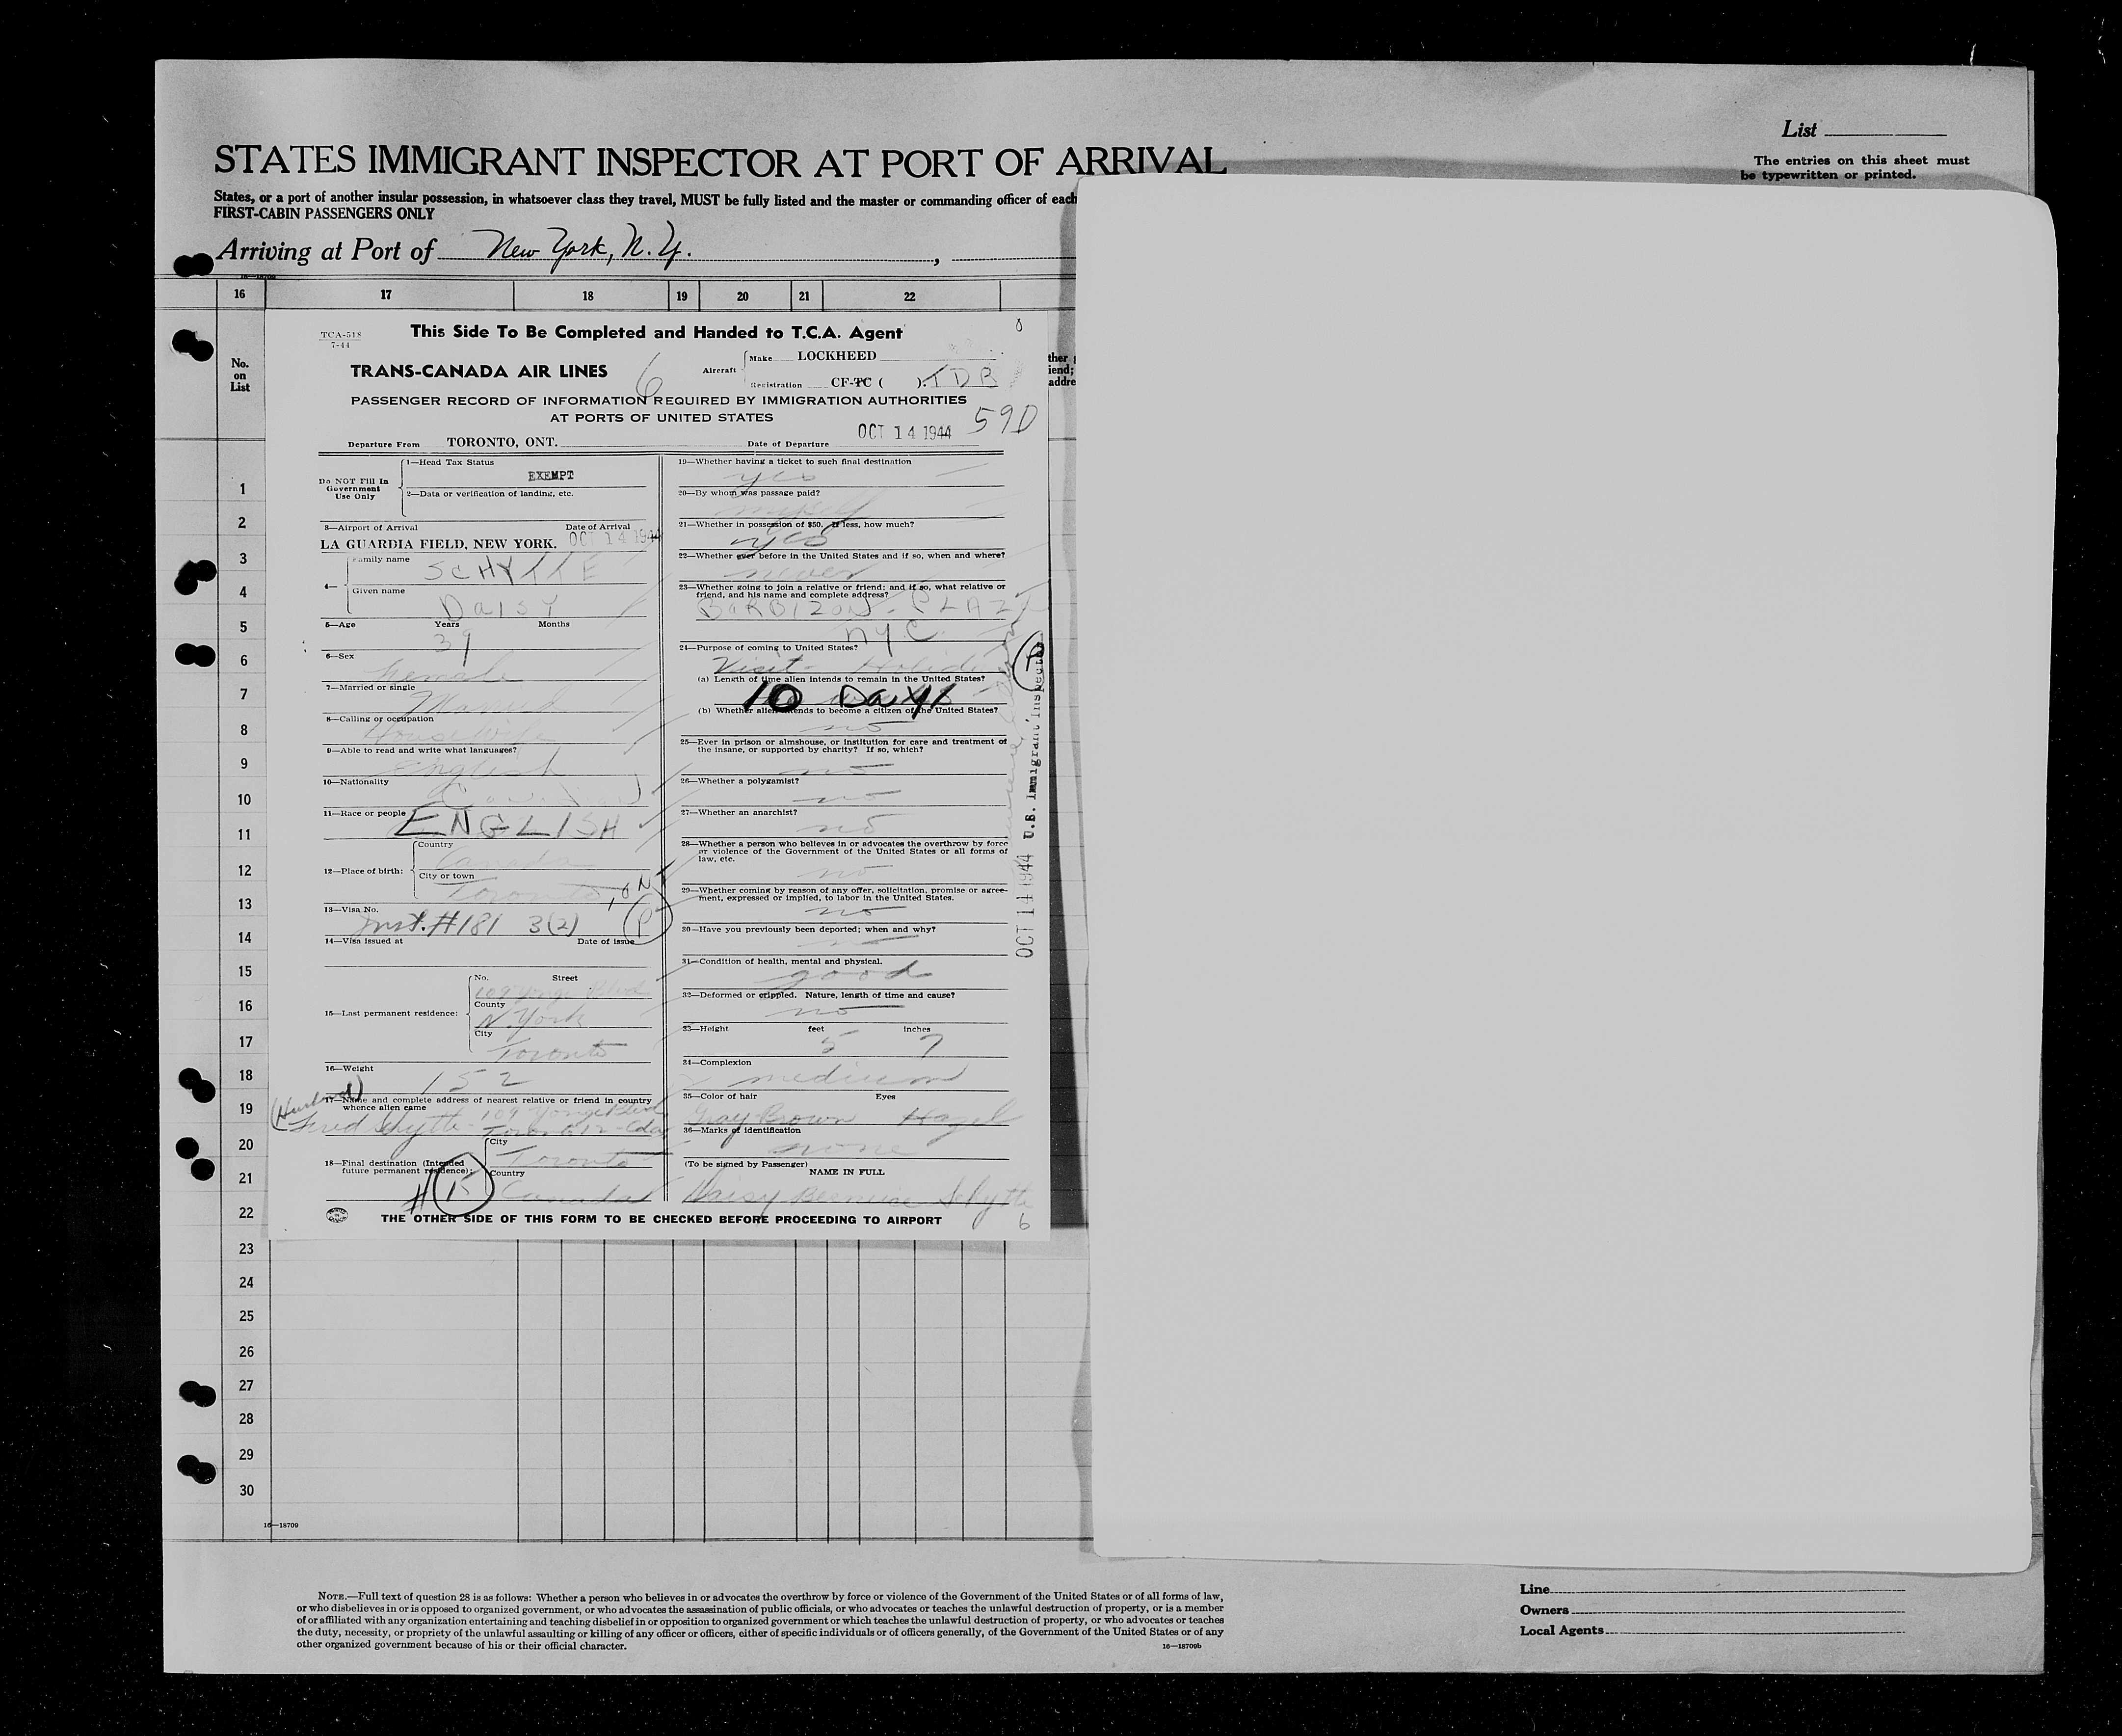 List
The entries on this sheet must
be typewritten or printed.
STATES IMMIGRANT INSPECTOR AT PORT OF ARRIVAL
States, or a port of another insular possession, in whatsoever class they travel, MUST be fully listed and the master or commanding officer of each
FIRST-CABIN PASSENGERS ONLY
Arriving at Port of New York, N.Y.
16 17 18 19 20 21 22
No.
on
List
TCA-518
7-44
This Side To Be Completed and Handed to T.C.A. Agent
TRANS-CANADA AIR LINES 6
Aircraft Make LOCKHEED
Registration CF-TC ( ). TDB
PASSENGER RECORD OF INFORMATION REQUIRED BY IMMIGRATION AUTHORITIES
AT PORTS OF UNITED STATES
590
Departure From TORONTO, ONT. Date of Departure OCT 14 1944
Do NOT Fill In
Government
Use Only
1—Head Tax Status
EXEMPT
2—Data or verification of landing, etc.
3—Airport of Arrival Date of Arrival
LA GUARDIA FIELD, NEW YORK. OCT 14 1944
4— Family name SCHYTTE
Given name Daisy
5—Age Years Months
39
6—Sex
Female
7—Married or single
Married
8—Calling or occupation
Housewife
9—Able to read and write what languages?
English
10—Nationality
Canadian
11—Race or people ENGLISH
12—Place of birth: Country
Canada
City or town
Toronto, ON
13—Visa No.
Inst. #181 3(2) P
14—Visa issued at Date of issue
15—Last permanent residence: No. Street
109 Yonge Blvd
County
N. York
City
Toronto
16—Weight
152
(Husband)
17—Name and complete address of nearest relative or friend in country
whence alien came
Fred Schytte - 109 Yonge Blvd
Toronto 12 - Cda
18—Final destination (Intended
future permanent residence): City
Toronto
Country
Canada
19—Whether having a ticket to such final destination
yes
20—By whom was passage paid?
myself
21—Whether in possession of $50. If less, how much?
yes
22—Whether ever before in the United States and if so, when and where?
23—Whether going to join a relative or friend; and if so, what relative or
friend, and his name and complete address?
BARBIZON-PLAZA
NYC
24—Purpose of coming to United States?
Visit - Holiday
(a) Length of time alien intends to remain in the United States?
10 Days
(b) Whether alien intends to become a citizen of the United States?
no
25—Ever in prison or almshouse, or institution for care and treatment of
the insane, or supported by charity? If so, which?
no
26—Whether a polygamist?
no
27—Whether an anarchist?
no
28—Whether a person who believes in or advocates the overthrow by force
or violence of the Government of the United States or all forms of
law, etc.
no
29—Whether coming by reason of any offer, solicitation, promise or agree-
ment, expressed or implied, to labor in the United States.
no
30—Have you previously been deported; when and why?
no
31—Condition of health, mental and physical.
good
32—Deformed or crippled. Nature, length of time and cause?
no
33—Height feet inches
5 7
34—Complexion
medium
35—Color of hair Eyes
Gray Brown Hazel
36—Marks of identification
none
(To be signed by Passenger)
NAME IN FULL
Daisy Bernice Schytte
6
OCT 14 1944 U.S. Immigrant Inspector
THE OTHER SIDE OF THIS FORM TO BE CHECKED BEFORE PROCEEDING TO AIRPORT
1
2
3
4
5
6
7
8
9
10
11
12
13
14
15
16
17
18
19
20
21
22
23
24
25
26
27
28
29
30
16—18709
NOTE.—Full text of question 28 is as follows: Whether a person who believes in or advocates the overthrow by force or violence of the Government of the United States or of all forms of law,
or who disbelieves in or is opposed to organized government, or who advocates the assassination of public officials, or who advocates or teaches the unlawful destruction of property, or is a member
of or affiliated with any organization entertaining and teaching disbelief in or opposition to organized government or which teaches the unlawful destruction of property, or who advocates or teaches
the duty, necessity, or propriety of the unlawful assaulting or killing of any officer or officers, either of specific individuals or of officers generally, of the Government of the United States or of any
other organized government because of his or their official character.
16—18709b
Line
Owners
Local Agents